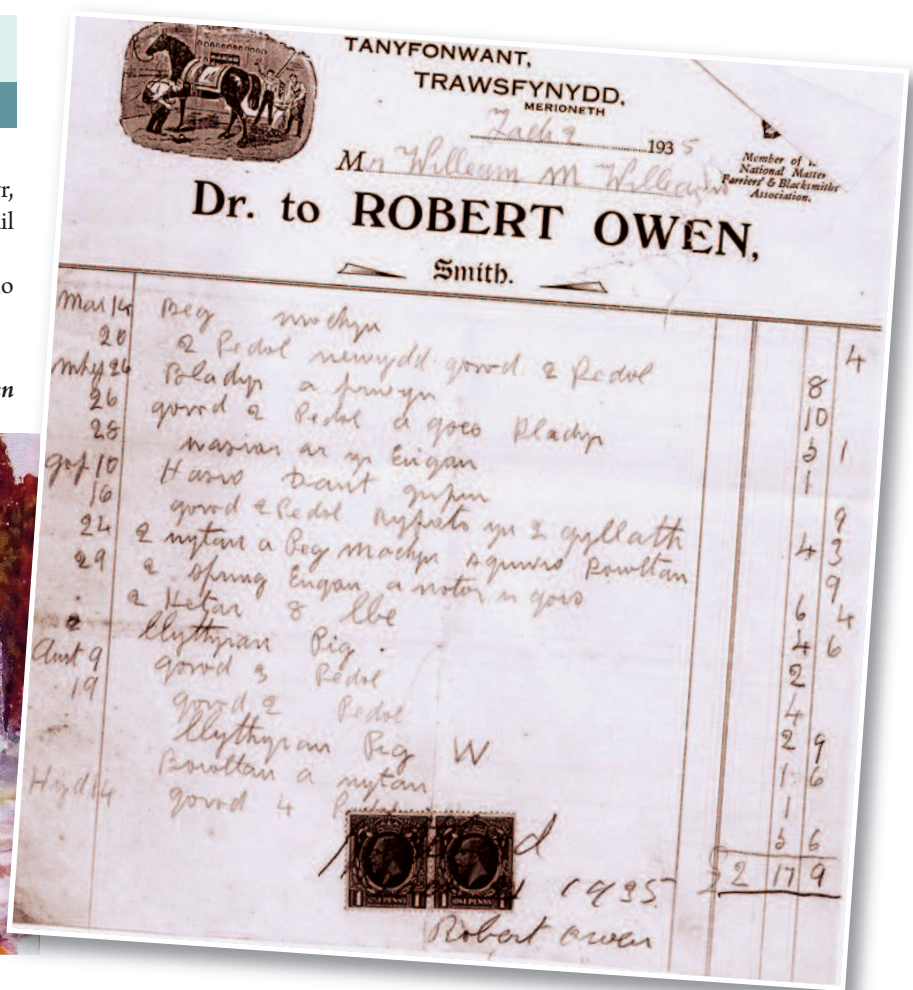 r,
il
o
n
TANYFONWANT,
TRAWSFYNYDD,
MERIONETH
9 1935
Mr William M Williams
Member of
National Master
Farriers' & Blacksmiths
Association.
Dr. to ROBERT OWEN,
Smith.
Mar 14 Beg mochyn 4
20 2 Pedol newydd gosod 2 Pedol 8
26 Bladyr a 10
26 gosod 2 Pedol a goco Pladyr 3 1
28 ar yr Eingan 1
gof 10 Haws Dant 9
16 gosod 2 Pedol yn 2 gyllath 4 3
24 2 nytan a Beg Mochyn Bowltan 9
29 2 spring Eingan a notor 6 4
2 8 lbs 4 6
2 llythyran Pig 2
Awst 9 gosod 3 Pedol 4
19 gosod 2 Pedol 2 9
llythyran Pig W 1 6
Bowltan a nytan 1
Hyd 14 gosod 4 Pedol 5 6
2 17 9
ONE PENNY ONE PENNY
1935
Robert Owen